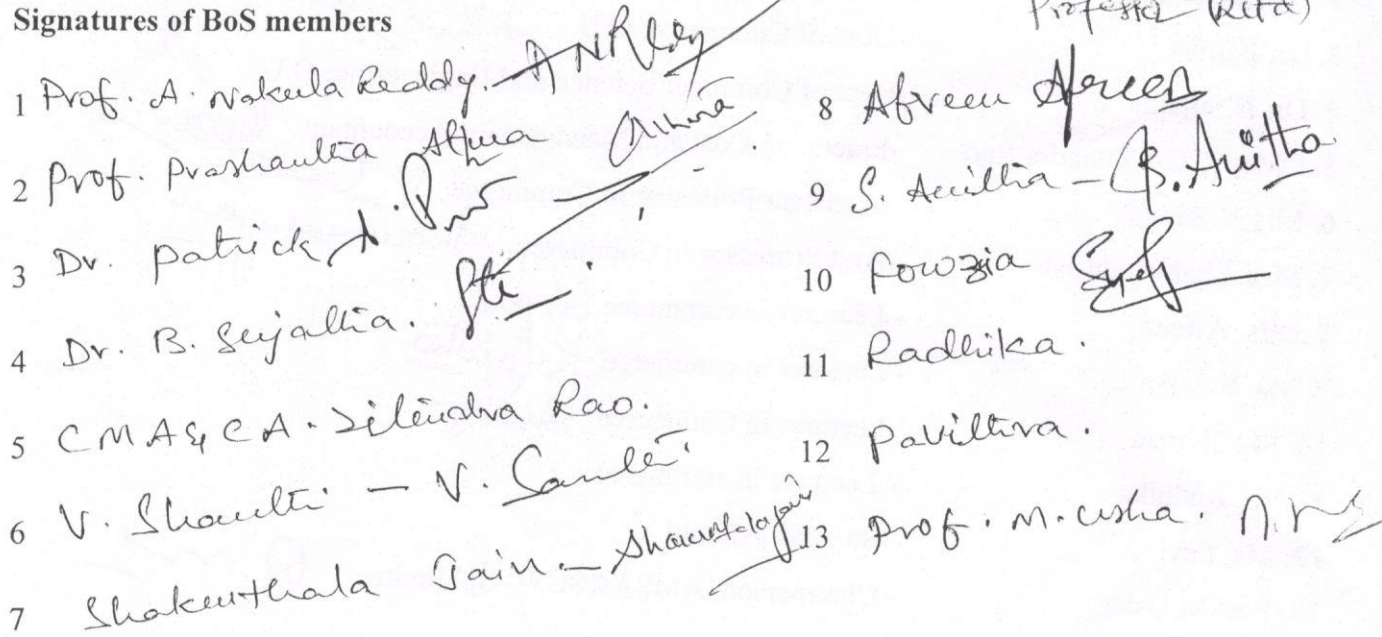 Signatures of BoS members
Professor (Retd)
1 Prof. A. Nakula Reddy. ANReddy
2 Prof. Prashantha Athma Athma
3 Dr. Patrick A.
4 Dr. B. Sujatha.
5 CMA & CA. Jitendra Rao.
6 V. Shanthi – V. Santhi
7 Shakunthala Jain – Shakuntala Jain
8 Afreen Afreen
9 S. Anitha – S. Anitha
10 Fowzia
11 Radhika.
12 Pavithra.
13 Prof. M. Usha.